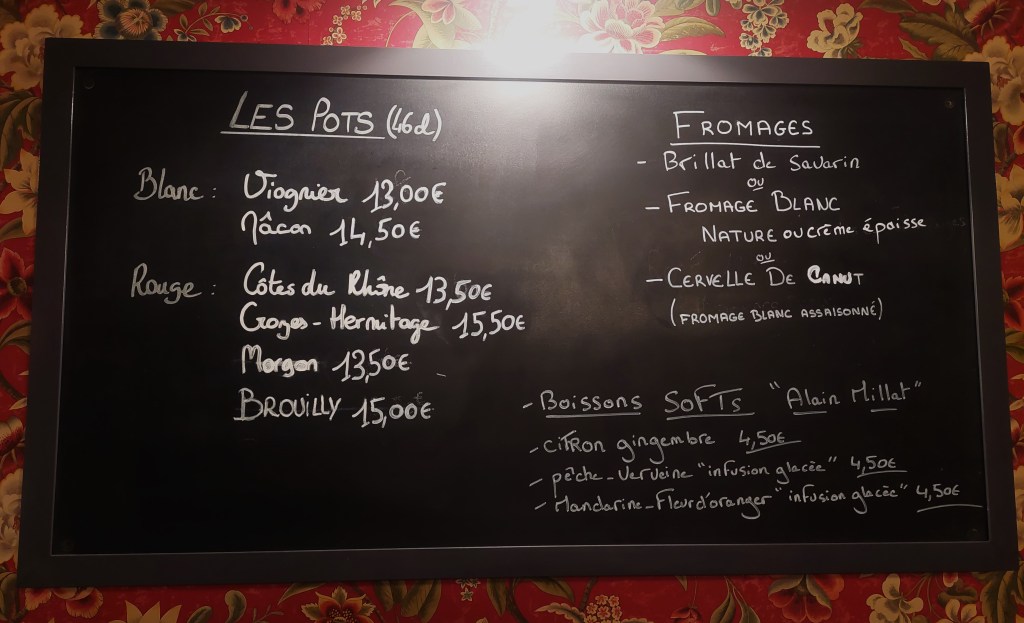 LES POTS (46cl)
Blanc : Viognier 13,00€
Mâcon 14,50€
Rouge : Côtes du Rhône 13,50€
Crozes-Hermitage 15,50€
Morgon 13,50€
BROUILLY 15,00€
FROMAGES
- Brillat de Savarin
ou
- FROMAGE BLANC
NATURE ou crème épaisse
ou
- CERVELLE DE CANUT
(FROMAGE BLANC ASSAISONNÉ)
- Boissons SOFTs "Alain Millat"
- CITRON gingembre 4,50€
- pêche-verveine "infusion glacée" 4,50€
- Mandarine-Fleur d'oranger "infusion glacée" 4,50€